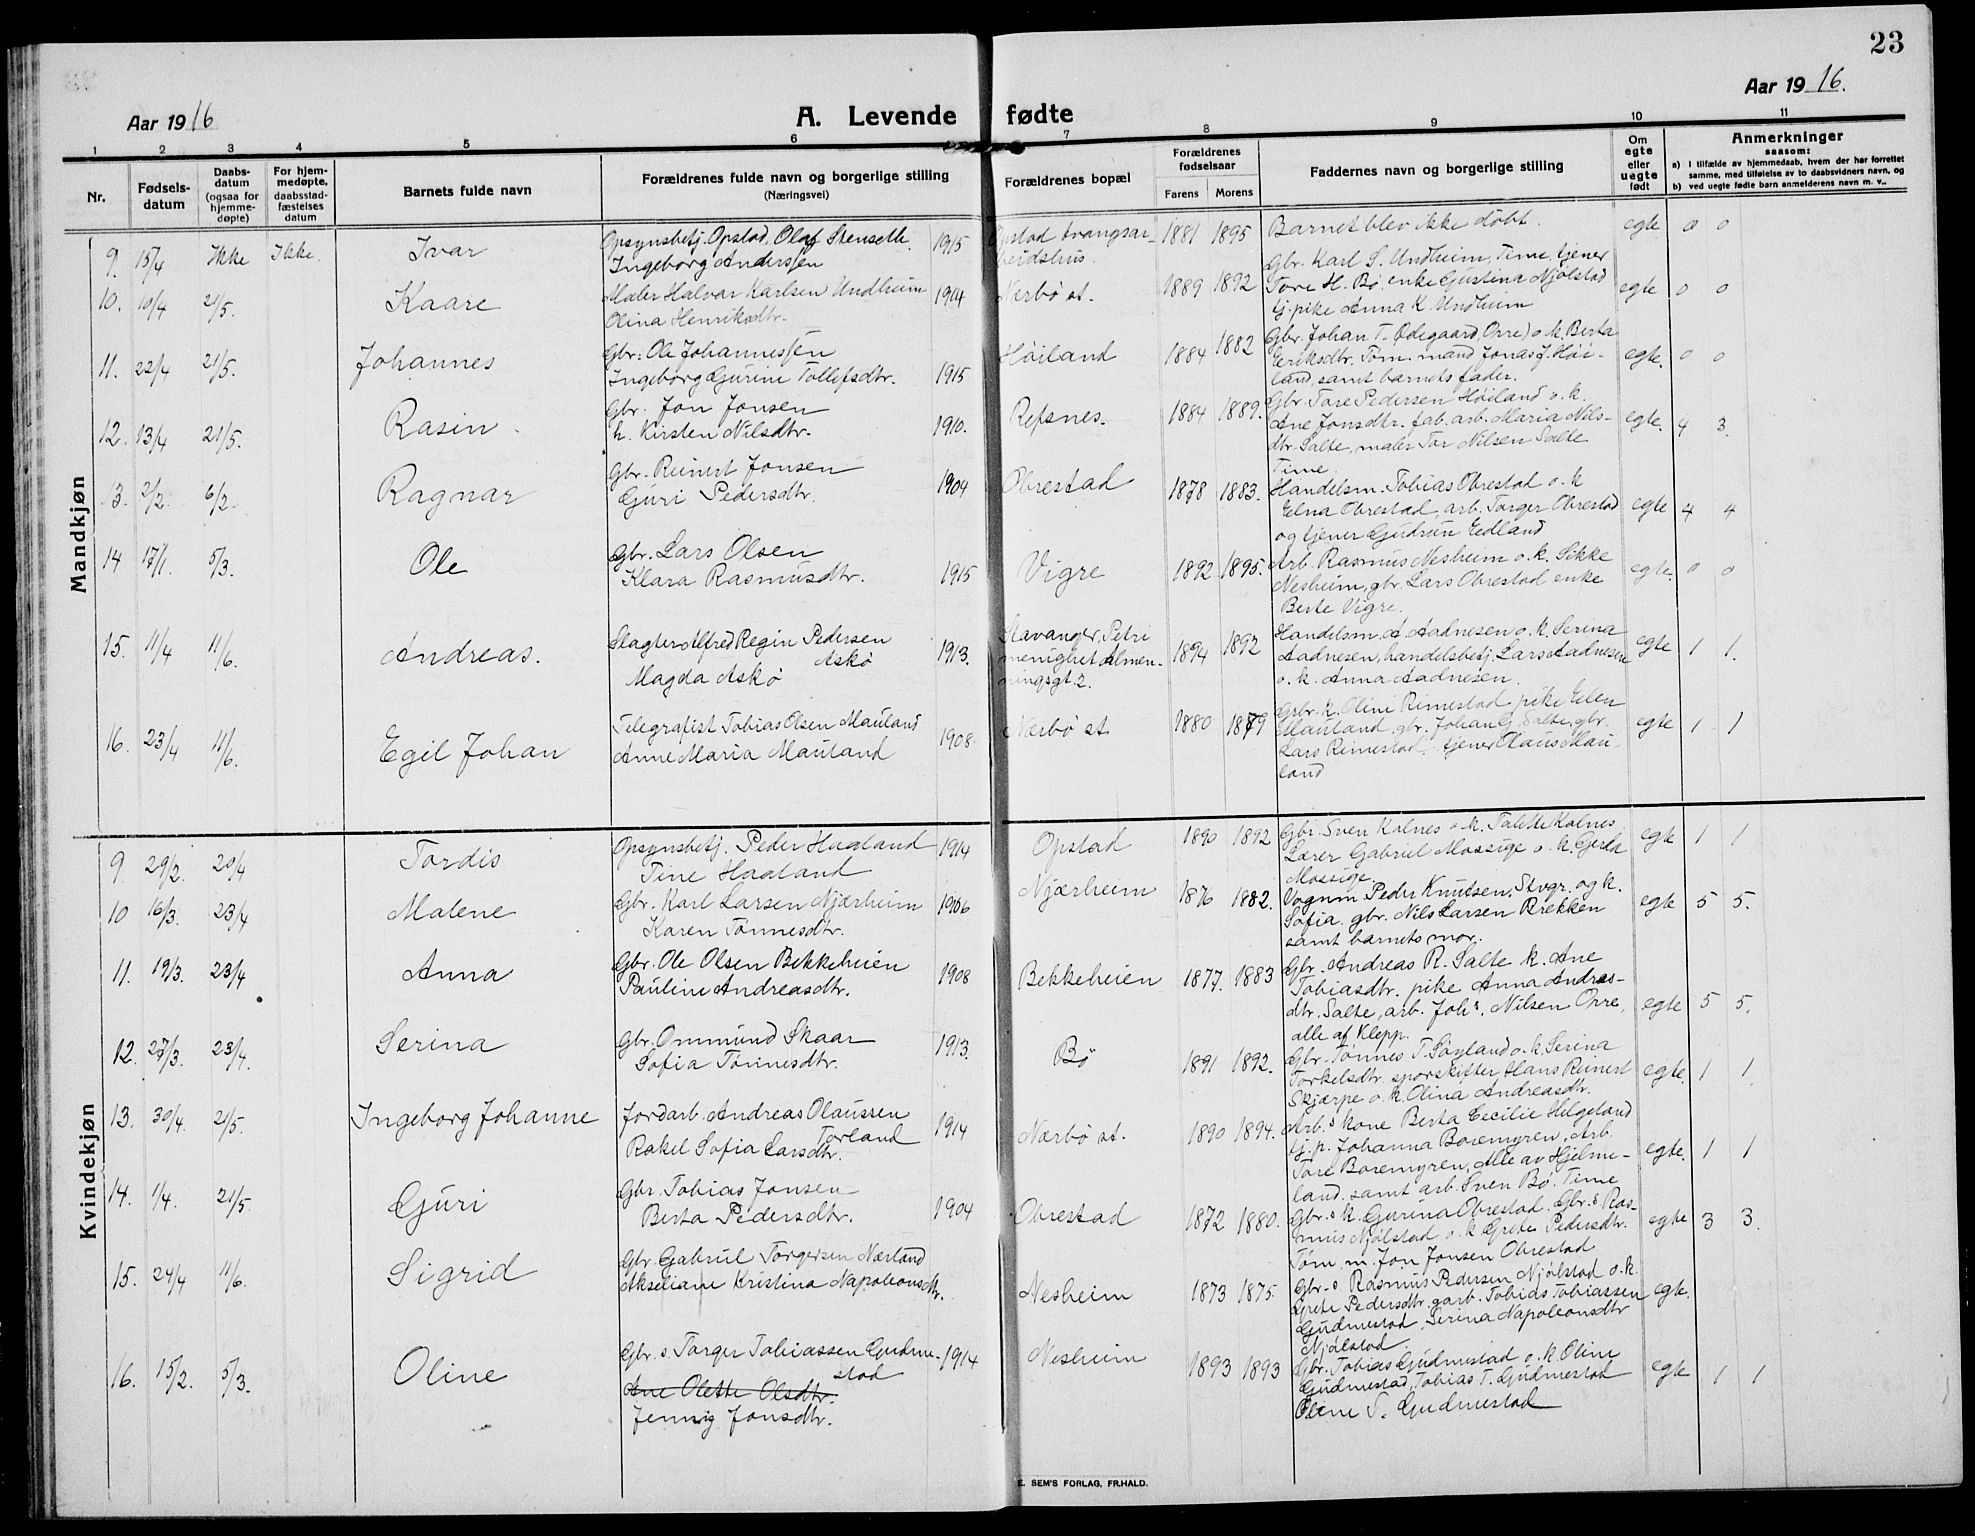 23
Aar 1916
A. Levende fødte
Aar 1916.
1 2 3 4 5 6 7 8 9 10 11
Nr.
Fødsels-
datum
Daabs-
datum
(ogsaa for
hjemme-
døpte)
For hjem-
medøpte,
daabsstad-
fæstelses
datum
Barnets fulde navn
Forældrenes fulde navn og borgerlige stilling
(Næringsvei)
Forældrenes bopæl
Forældrenes
fødselsaar
Farens Morens
Faddernes navn og borgerlige stilling
Om
egte
eller
uegte
født
Anmerkninger
saasom:
a) I tilfælde av hjemmedaab, hvem der har forrettet
samme, med tilføielse av to daabsvidners navn, og
b) ved uegte fødte barn anmelderens navn m. v..
Mandkjøn
9. 15/4 Ikke Ikke. Ivar
Opsynsbetj. Opstad, Olaf Stenseth. 1915
Ingeborg Anderssen
Opstad tvangsar-
beidshus.
1881 1895
Barnet blev ikke döbt.
egte 0 0
10. 10/4 21/5. Kaare
Maler Halvar Karlsen Undheim 1914
Olina Henriksdtr.
Nærbö st.
1889 1892
Gbr. Karl S. Undheim, Time, tjener
Tore H. Bö, enke Gustina Njölstad
tj. pike Anna K. Undheim
egte 0 0
11. 22/4 21/5. Johannes
Gbr: Ole Johannessen
Ingeborg Gurine Tollefsdtr. 1915
Höiland
1884 1882
Gbr. Johan T. Ödegaard, Orre) o. k. Berta
Eriksdtr. Töm. mand Jonas J. Höi-
land, samt barnets fader.
egte. 0 0
12. 13/4 21/5. Rasin.
Gbr. Jon Jonsen
h. Kirsten Nilsdtr. 1910.
Refsnes.
1884 1889.
Gbr. Tore Pedersen Höiland o. k.
Ane Jonsdtr. fab. arb. Maria Nils-
dtr. Salte, maler Tor Nilsen Salte
Time.
egte. 4 3.
13. 2/2. 6/2. Ragnar
Gbr. Reinert Jonsen
Guri Pedersdtr. 1904
Obrestad
1878 1883.
Handelsm. Tobias Obrestad o. k
Elna Obrestad, arb. Torger Obrestad
og tjener Gudrun Eidland
egte 4 4
14 17/1. 5/3. Ole
Gbr. Lars Olsen
Klara Rasmusdtr. 1915
Vigre
1892 1895.
Arb. Rasmus Nesheim o. k. Sikke
Nesheim, gbr. Lars Obrestad enke
Berte Vigre.
egte. 0 0
15. 11/4 11/6. Andreas.
Slagter Alfred Regin Pedersen
Askö 1913.
Magda Askö
Stavanger, Petri
menighet Almen-
ningsgt. 2.
1894 1892
Handelsm. A Aadnesen o. k. Serina
Aadnesen, handelsbetj. Lars Aadnesen
o. k. Anna Aadnesen.
egte 1 1.
16. 23/4 11/6. Egil Johan
Telegrafist Tobias Olsen Mauland
Anne Maria Mauland 1908
Nærbö st.
1880 1879
Gbr. k. Olini Rimestad pike Elen
Mauland, gbr. Johan G. Salte, gbr.
Lars Rimestad, tjener Olaus Mau-
land
egte 1 1
Kvindekjøn
9. 29/2. 20/4 Tordis
Opsynsbetj. Peder Haaland 1914
Tine Haaland
Opstad
1890 1892
Gbr. Sven Kalnes o. k. Talette Kalnes
Lærer Gabriel Mossige o. k. Gerta
Mossige.
egte 1 1
10 16/3. 23/4 Malene
Gbr. Karl Larsen Njærheim 1906
Karen Tönnesdtr.
Njærheim
1876 1882.
Vognm Peder Knutsen, Stvgr. og k.
Sofia. gbr. Nils Larsen Rrekken
samt barnets mor.
egte 5 5.
11. 19/3. 23/4 Anna
Gbr. Ole Olsen Bekkeheien
Pauline Andreasdtr. 1908
Bekkeheien
1877. 1883
Gbr. Andreas R. Salte k. Ane
Tobiasdtr. pike Anna Andreas-
dtr. Salte, arb. Johs. Nilsen Orre,
alle af Klepp.
egte 5 5.
12. 27/3. 23/4. Serina
Gbr. Ommund Skaar
Sofia Tönnesdtr. 1913.
Bö
1891 1892.
Gbr. Tönnes T. Söyland o. k. Serina
Torkelsdtr. sporskifter Hans Reinert
Skjærpe o. k. Olina Andreasdtr.
egte. 1 1
13. 30/4. 21/5. Ingeborg Johanne
Jordarb. Andreas Olaussen
Torland 1914
Rakel Sofia Larsdtr.
Nærbö st.
1890 1894.
Arb.s kone Berta Cecilie Helgeland
tj. p. Johanna Boremyren, Arb.
Tore Boremyren, Alle av Hjelme-
land. samt arb. Sven Bö. Time
egte. 1 1
14. 1/4. 21/5. Guri
Gbr. Tobias Jonsen
Berta Pedersdtr. 1904
Obrestad
1872 1880.
Gbr.s k. Gurina Obrestad. Gbr.s Ras-
mus Njölstad o. k Grete Pedersdtr.
Töm. m. Jon Jonsen Obrestad
egte 3 3.
15. 24/4 11/6. Sigrid
Gbr. Gabriel Torgersen Nærland
Akseliane Kristina Napoleonsdtr.
Nesheim
1873 1875
Gbr. s Rasmus Pedersen Njölstad o. k.
Grete Pedersdtr. garb. Tobias Tobiassen
Gudmestad, Serina Napoleonsdtr
Njölstad.
egte.
16. 15/2. 5/3. Oline
Gbr. s. Torger Tobiassen Gudme- 1914
stad
Ane Olette Olsdtr.
Jenny Jonsdtr.
Nesheim
1893 1893
Gbr. Tobias Gudmestad o. k. Oline
Gudmestad, Tobias T. Gudmestad
Oline T. Gudmestad
egte 1 1
E. SEM'S FORLAG, FR.HALD.